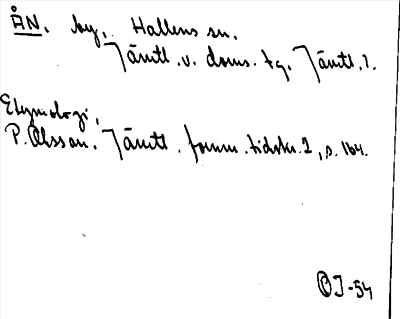 ÅN. by, Hallens sn.
Jämtl. v. doms. tg. Jämtl. l.
Etymologi,
P. Olsson. Jämtl. fornm. tidskr. 1, s. 164.
OJ-54